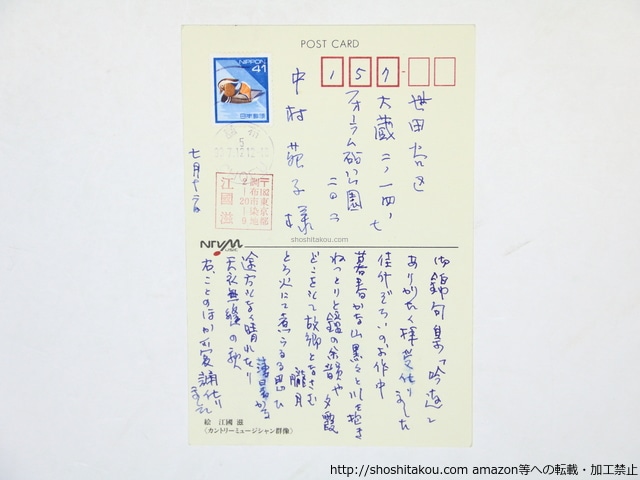 POST CARD
157
NIPPON
41
日本郵便
世田谷区
大蔵二ノ一四ノ七
フォーラム砧公園
二〇二
中村苑子様
七月十二日
〒国東京都
調布市染地
2-20-9
江國滋
shoshitakou.com
御錦句集「吟遊」
ありがたく拝受仕りました
佳什ぞろいのお作中
暮春かな山黒々と川を抱き
ねっとりと鐘の余韻や夕霞
どこをもて故郷となさむ
朧月
とろ火にて煮らるる思ひ
薄暑かな
途方もなく晴れをり
天衣無縫の秋
右、ことのほか
仕り
ました
絵 江國 滋
〈カントリーミュージシャン群像〉
http://shoshitakou.com amazon等への転載・加工禁止